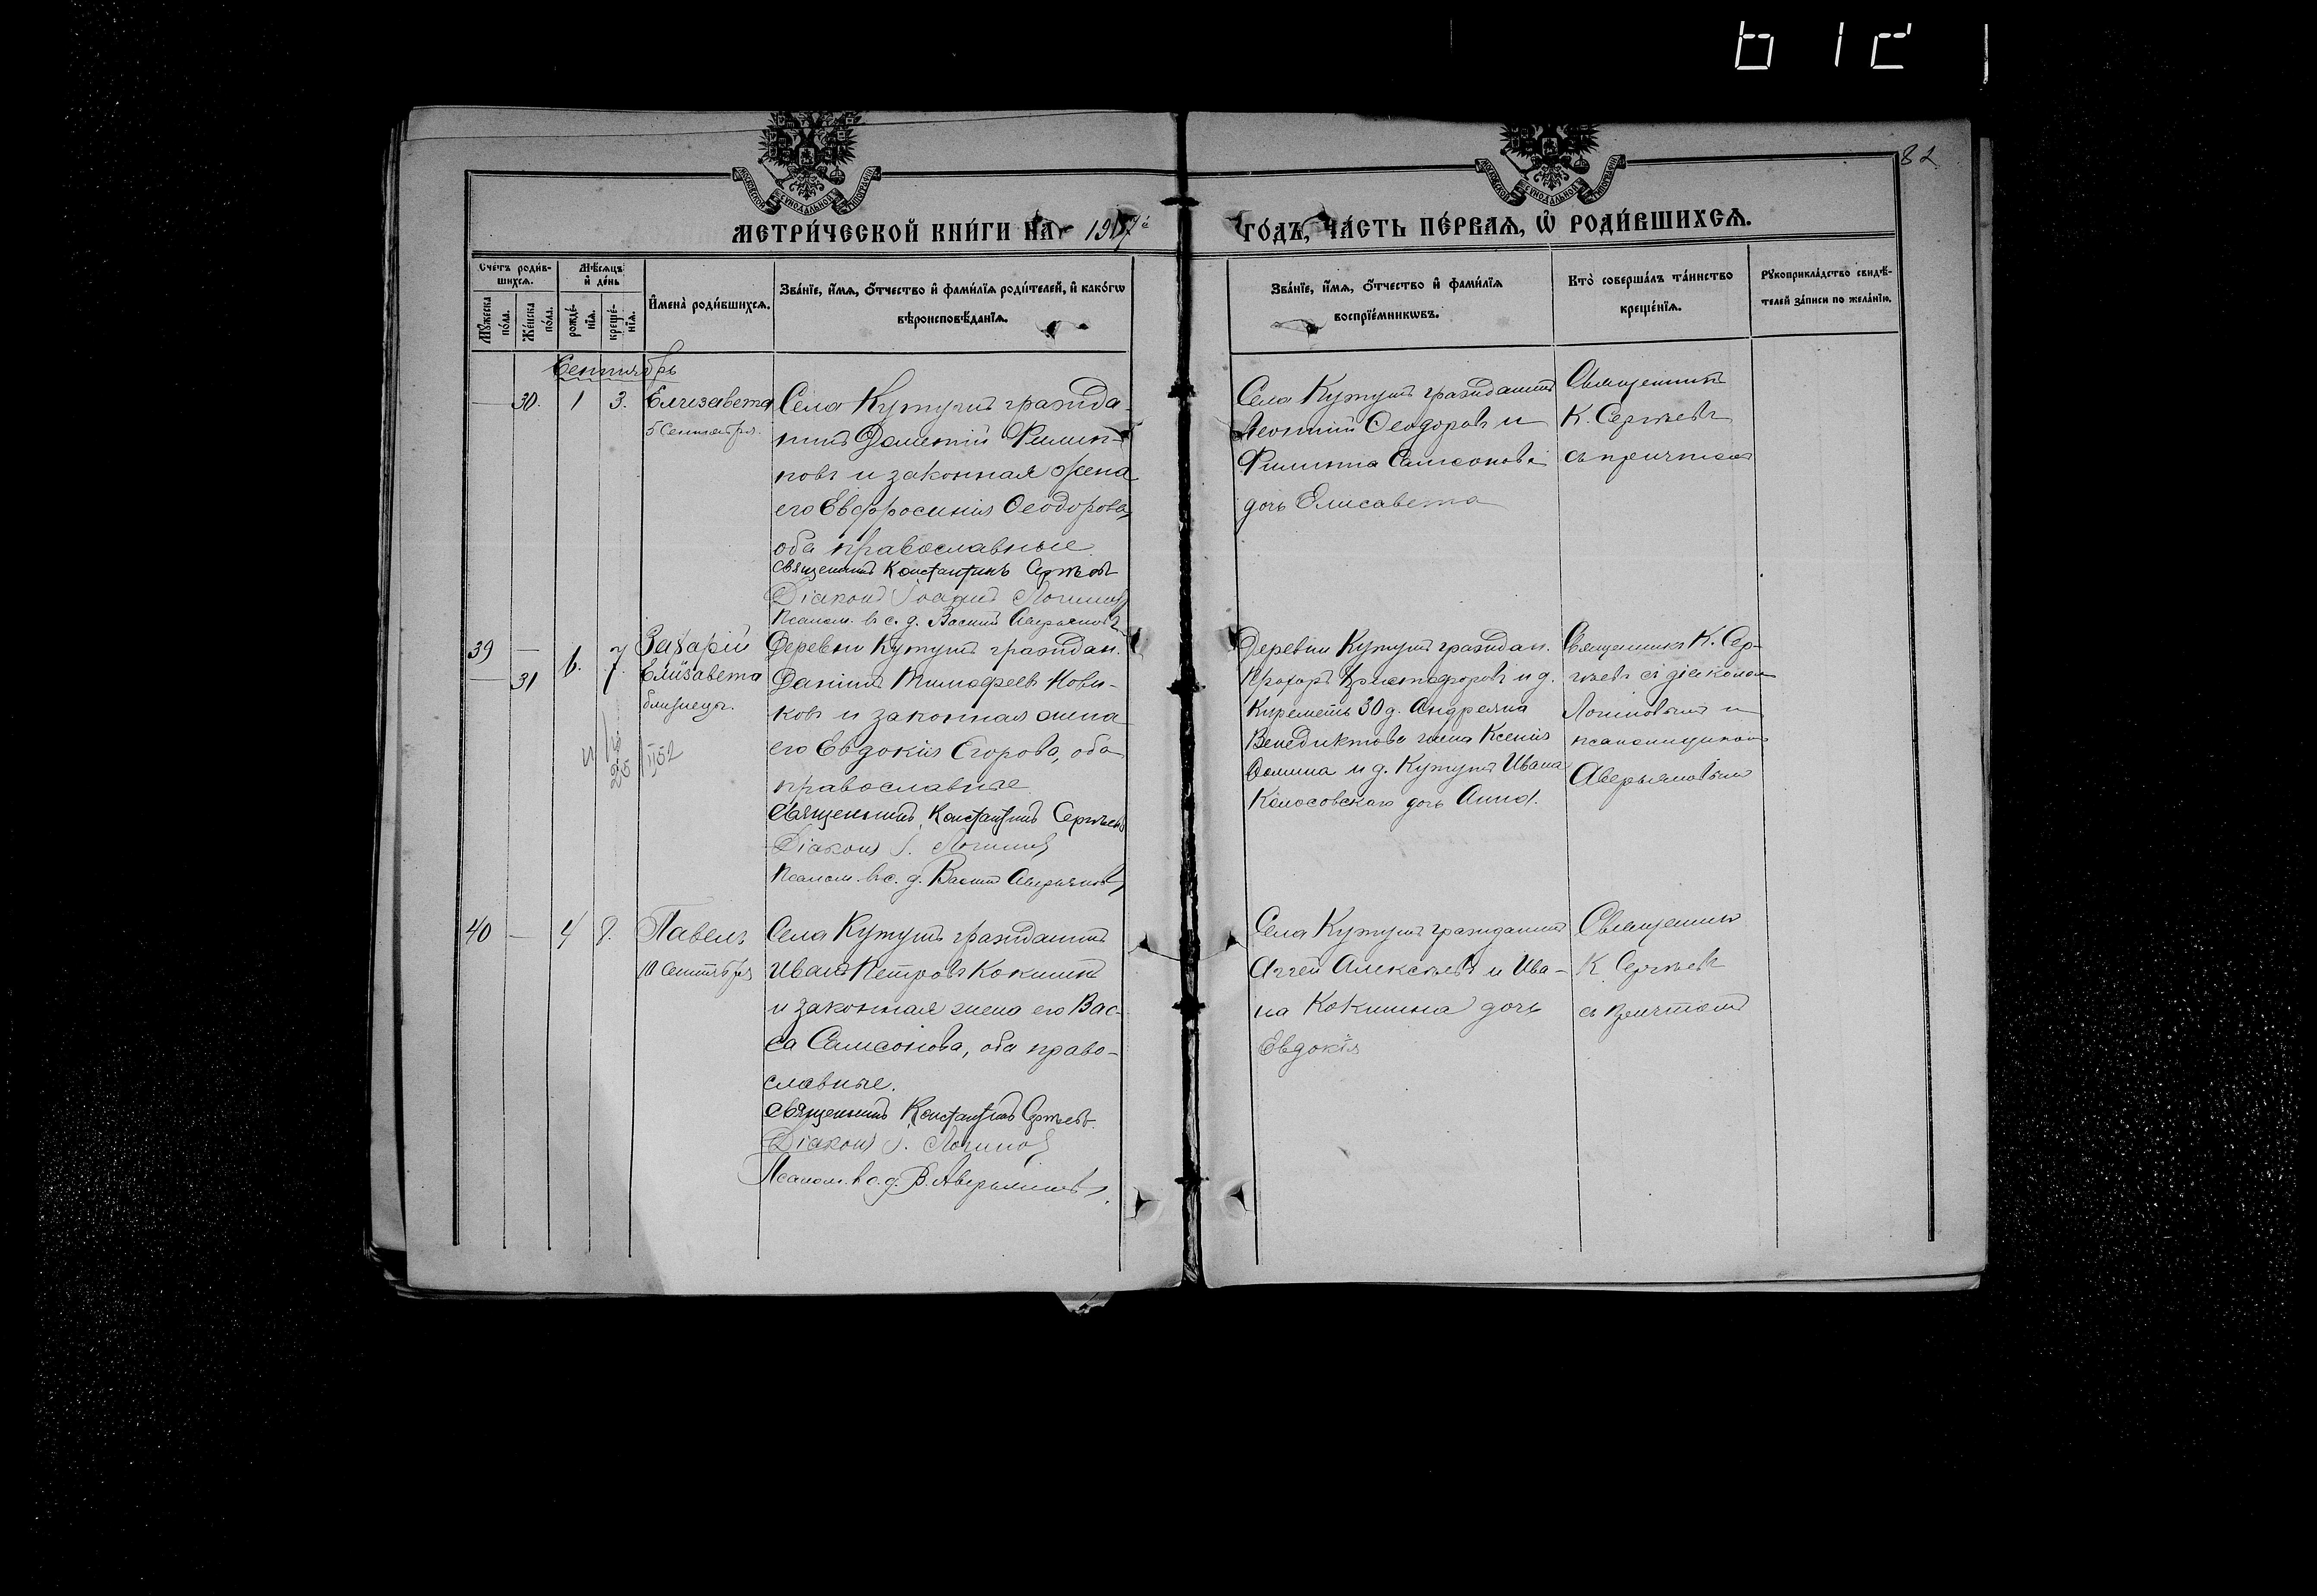 82
МЕТРИ́ЧЕСКОЙ КНИ́ГИ НА 1917й ГО́ДЪ, ЧА́СТЬ ПЕ́РВАѦ, Ѡ҆ РОДИ́ВШИХСѦ.
Сче́тъ роди́в-
шихсѧ.
Мꙋ́жеска
по́ла.
Же́нска
по́ла.
Мѣ́сѧцъ
и҆ де́нь
рожде́-
нїѧ.
креще́-
нїѧ.
И҆мена̀ роди́вшихсѧ.
Зва́нїе, и҆́мѧ, ѻ҆́тчество и҆ фами́лїѧ роди́телей, и҆ како́гѡ
вѣроисповѣ́данїѧ.
Зва́нїе, и҆́мѧ, ѻ҆́тчество и҆ фами́лїѧ
воспрїе́мникѡвъ.
Кто̀ соверша́лъ та́инство
креще́нїѧ.
Рꙋкоприкла́дство свидѣ́-
телей за́писи по жела́нїю.
Сентябрь
— 30. 1 3.
Елизавета
5 Сентября.
Села Кутушъ гражда-
нинъ Дометій Филип-
повъ и законная жена
его Евфросинія Ѳеодорова,
оба православные
Священникъ Константинъ Сергѣевъ
Діаконъ Іоаннъ Логиновъ
Псалом. в с. д. Василій Аверьяновъ
Села Кутушъ гражданинъ
Леонтій Ѳеодоровъ и
Филиппа Самсонова
дочь Елисавета
Священникъ
К. Сергѣевъ
съ причтомъ
39 —
— 31
6. 7.
7.
Захарій
Елизавета
близнецы.
II 52
Деревни Кутушъ граждан.
Даніилъ Тимофеевъ Нови-
ковъ и законная жена
его Евдокія Егорова, оба
православные
Священникъ Константинъ Сергѣевъ
Діаконъ І. Логиновъ
Псалом. в с. д. Василій Аверьяновъ
Деревни Кутушъ граждан.
Прохоръ Христофоровъ и д.
Киреметь 30 д. Андреяна
Венедиктова жена Ксенія
Ѳомина и д. Кутушъ Ивана
Колосовскаго дочь Анна.
Священникъ К. Сер-
гѣевъ съ діакономъ
Логиновымъ и
псаломщикомъ
Аверьяновымъ
40 — 4 8.
Павелъ
10 Сентября
Села Кутушъ гражданинъ
Иванъ Петровъ Кокшинъ
и законная жена его Вас-
са Самсонова, оба право-
славные.
Священникъ Константинъ Сергѣевъ
Діаконъ І. Логиновъ
Псалом. в с. д. В. Аверьяновъ.
Села Кутушъ гражданинъ
Аггей Алексѣевъ и Ива-
на Кокшина дочь
Евдокія
Священникъ
К. Сергѣевъ
съ причтомъ